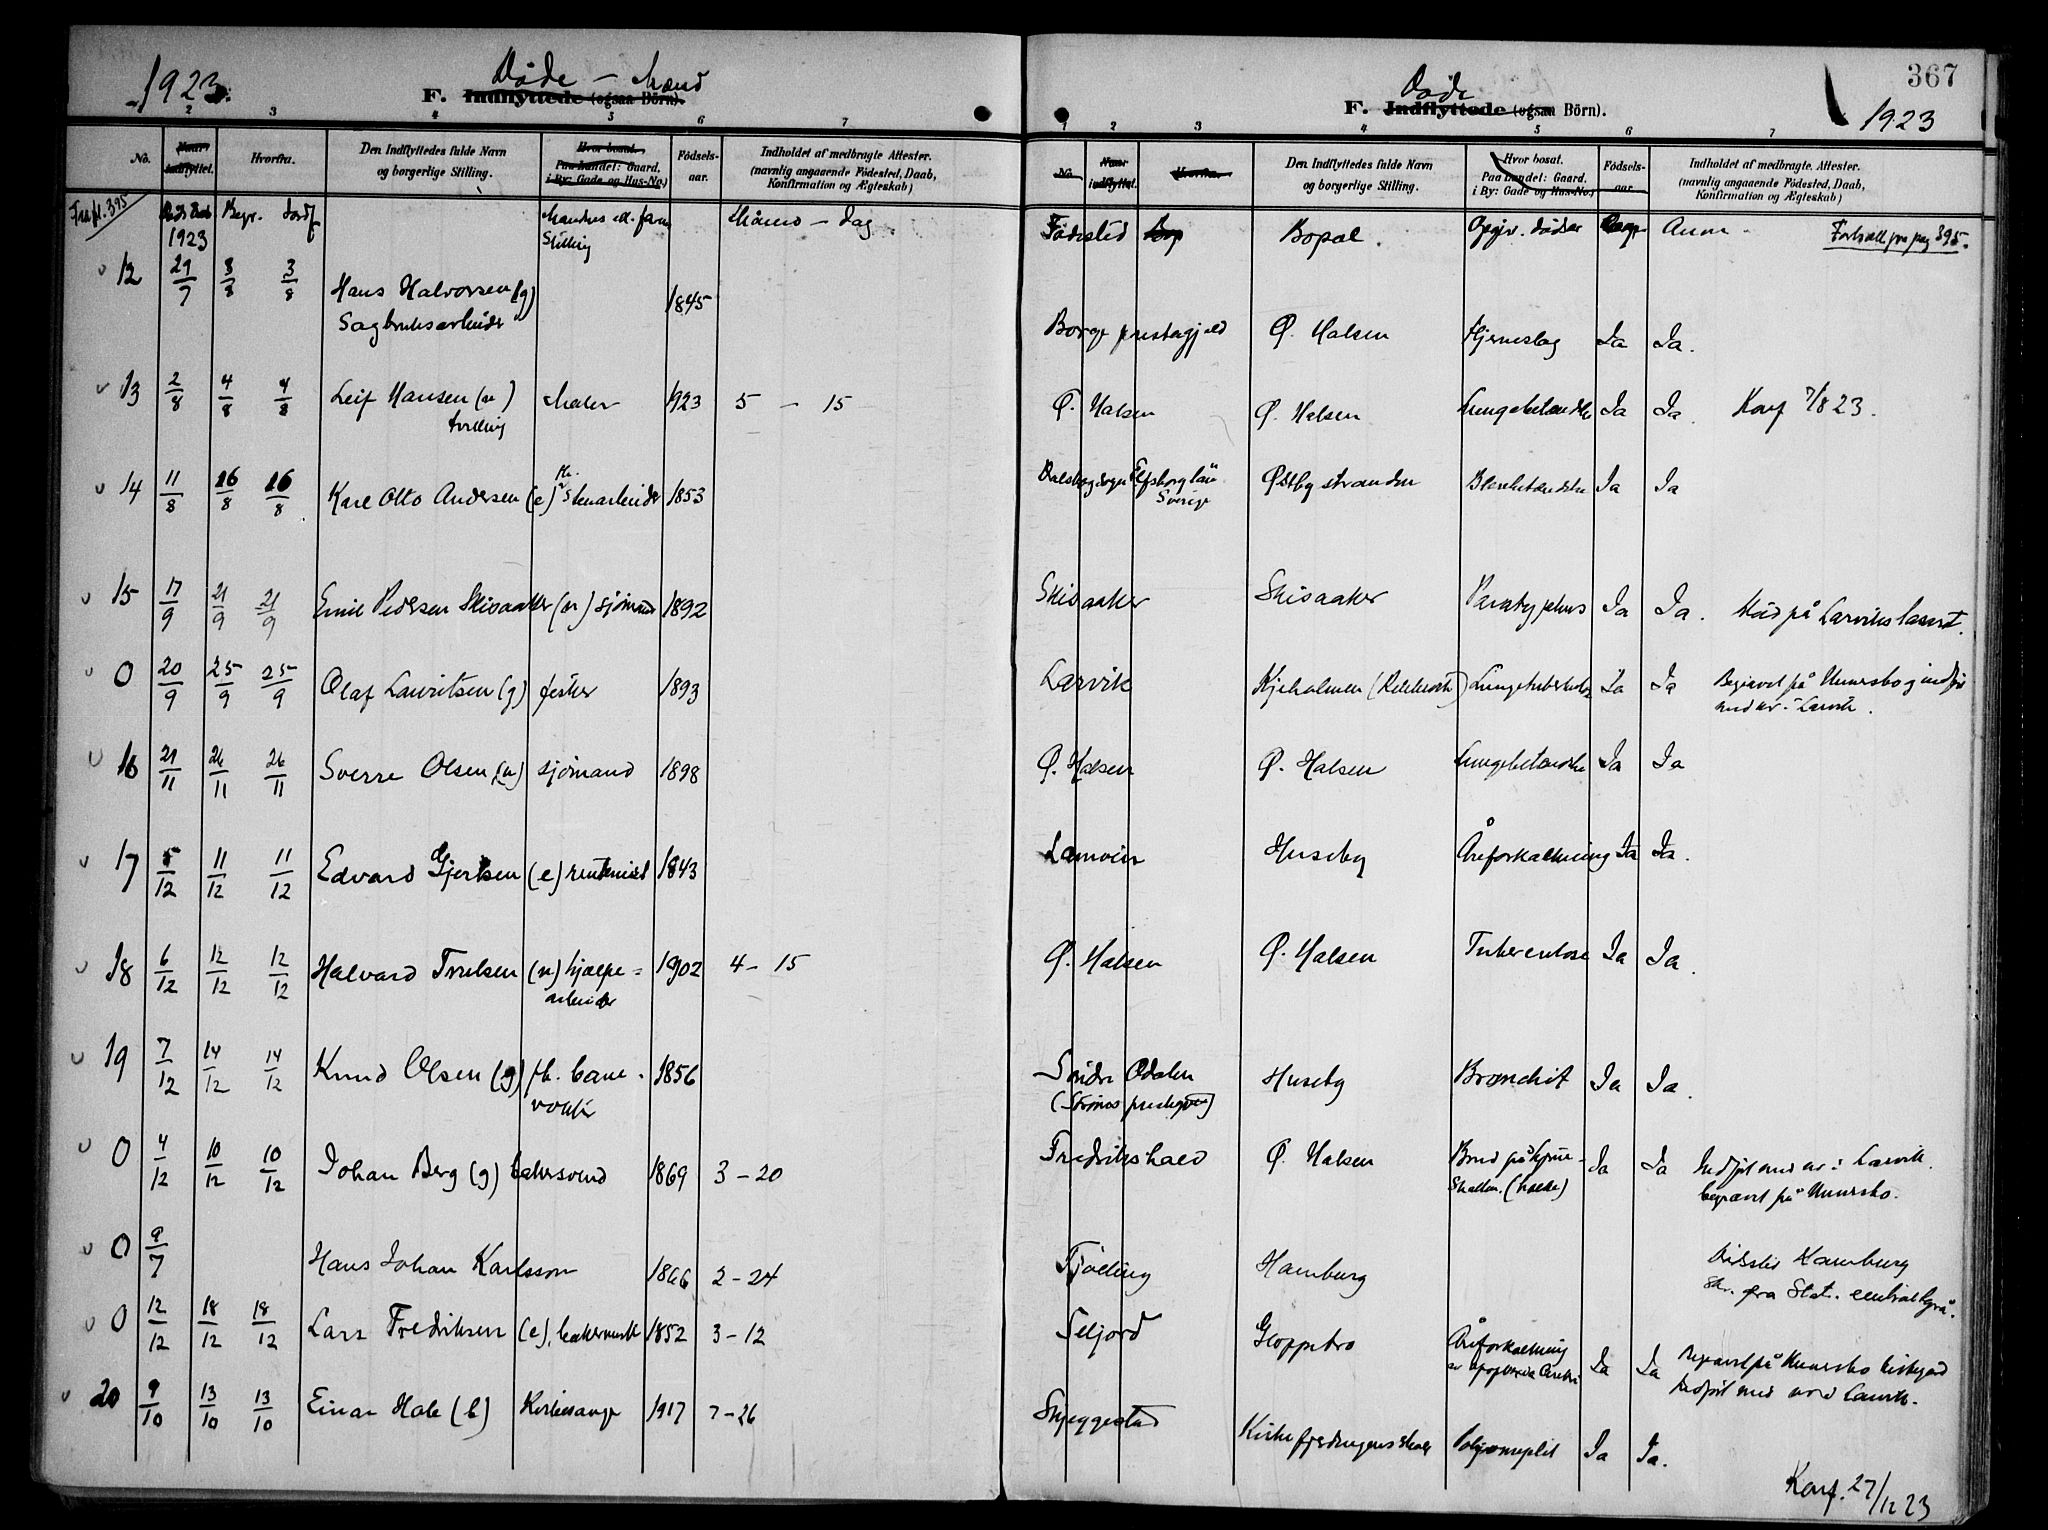 1923.
Døde – Mænd
F. Indflyttede (ogsaa Börn).
2 3 4 5 6 7
No.
Naar indflyttet.
Hvorfra.
Den Indflyttedes fulde Navn og borgerlige Stilling.
Hvor bosat. Paa Landet: Gaard. i By: Gade og Hus-No.)
Födsels-aar.
Indholdet af medbragte Attester. (navnlig angaaende Födested, Daab, Konfirmation og Ægteskab)
Fra pg. 395
1923
Begr. Jordf
Stilling
Måned – Dag
12 29/7 3/8 3/8 Hans Halvorsen (g) 1845
Sagbruksarbeider
13 2/8 4/8 4/8 Leif Hansen (u) Maler 1923 5 – 15
tvilling
14 11/8 16/8 16/8 Karl Otto Andersen (e) fh. Stenarbeider 1853
15 17/9 21/9 21/9 Emil Pedersen Skisaaker (u) sjömand 1892
0 20/9 25/9 25/9 Olaf Lauritsen (g) fisker 1893
16 21/11 26/11 26/11 Sverre Olsen (u) sjömand 1898
17 5/12 11/12 11/12 Edvard Gjertsen (e) rentenist 1843
18 6/12 12/12 12/12 Halvard Truelsen (u) hjælpe= 1902 4 – 15
arbeider
19 7/12 14/12 14/12 Knud Olsen (g) fh. bane- 1856
vokter
0 4/12 10/12 10/12 Johan Berg (g) bakersvend 1869 3 – 20
0 9/7 Hans Johan Karlsson 1866 2 – 24
0 12/12 18/12 18/12 Lars Fredriksen (e), 1852 3 – 12
20 9/10 13/10 13/10 Einar Hole (b) Kirkesanger 1917 7 – 26
367
Døde
1923
F. Indflyttede (ogsaa Börn).
1 2 3 4 5 6 7
No.
Naar indflyttet.
Hvorfra.
Den Indflyttedes fulde Navn og borgerlige Stilling.
Hvor bosat. Paa Landet: Gaard. i By: Gade og Hus-No.)
Födsels-aar.
Indholdet af medbragte Attester. (navnlig angaaende Födested, Daab, Konfirmation og Ægteskab)
Fødested Bopæl. Opgiv. dødsår Anm. Fortsatt fra pag 395.
Borge prestegjeld Ø. Halsen Hjerneslag Ja Ja.
Ø. Halsen Ø. Halsen Lungebetændelse Ja Ja. Konf 7/8 23.
Elfsborg län Østbystranden Ja Ja
Sverige
Skisaaker Skisaaker Paratyphus Ja Ja. Død på Larviks lasaret.
Larvik Kjeholmen Lungetuberkulose Ja Ja Begravet på Unnersbo og indført
under i Larvik.
Ø. Halsen Ø. Halsen Lungebetændelse Ja Ja
Huseby Åreforkalkning Ja Ja.
Ø. Halsen Ø. Halsen Tuberculose Ja Ja.
Søndre Odalen Huseby Bronchit Ja Ja.
(Strøms prestegjeld)
Fredrikshald Ø. Halsen Ja Ja Indført und nr i Larvik.
begravet på Unnersbo.
Tjølling Hamburg Dødssted Hamburg
skr. fra Stat. centralbyrå.
Seljord Gloppebro Åreforkalkning Ja Ja Begravet på Unnersbo kirkegård
Indført und nr i Larvik.
Skjeggestad Kirkefjerdingens skole Ja Ja.
Konf. 27/12 23